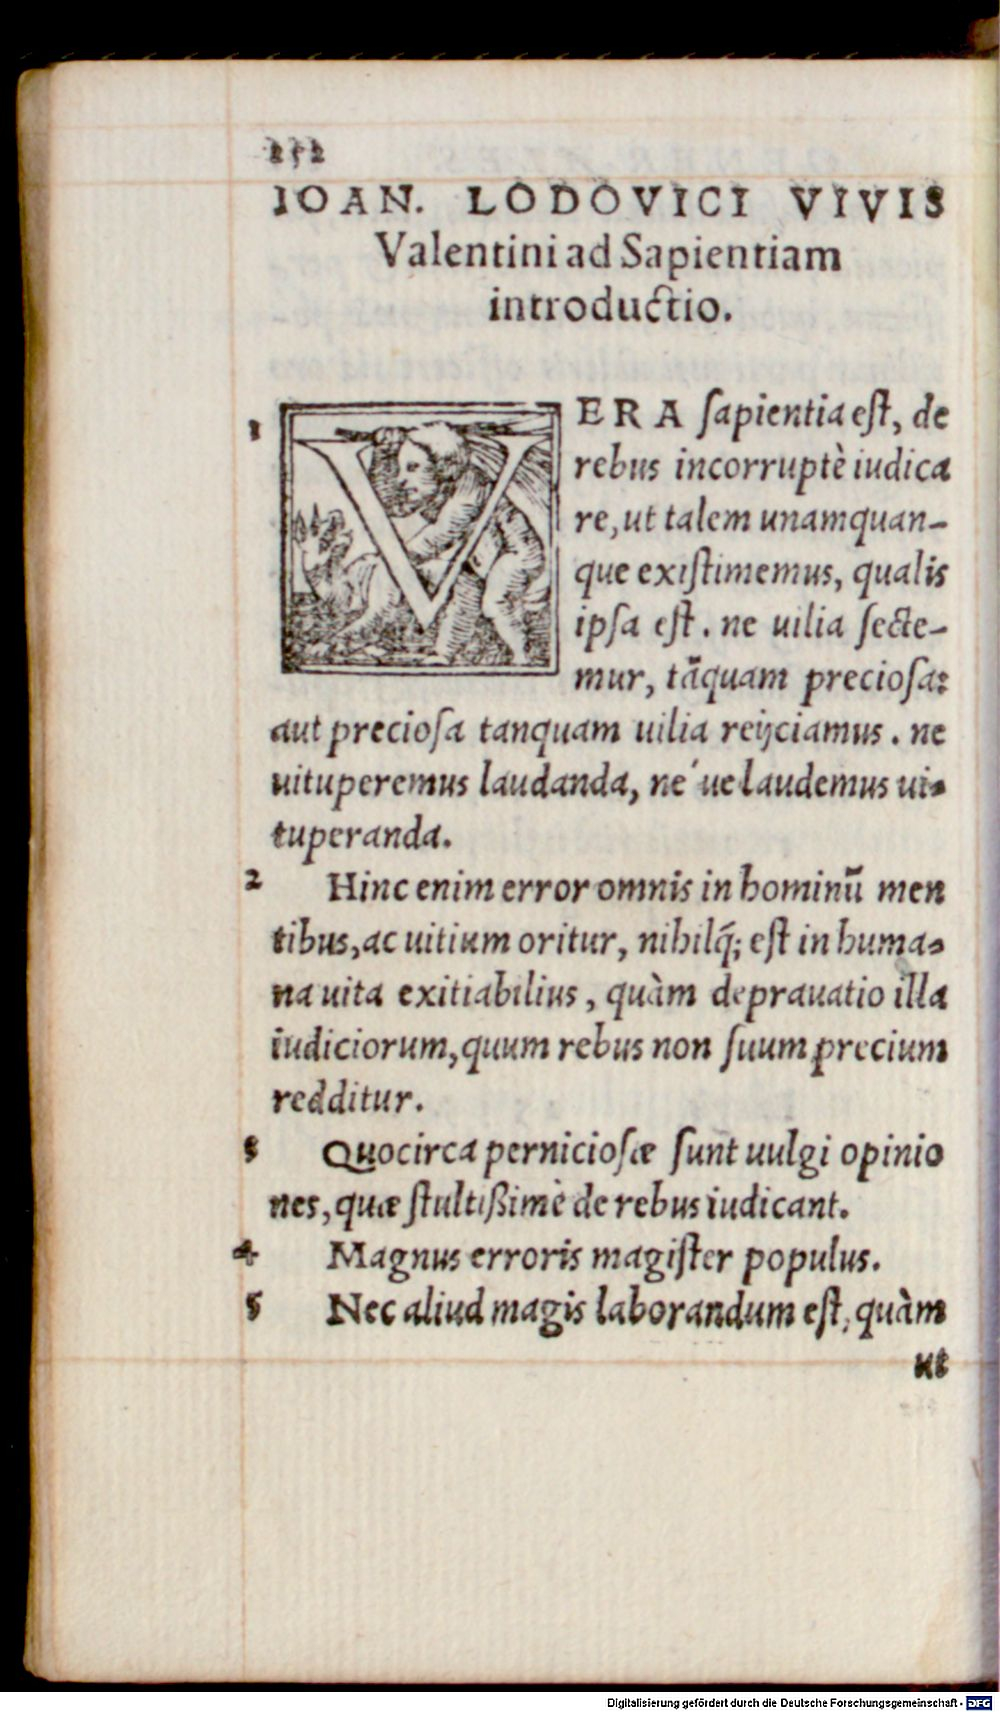 252
IOAN. LODOVICI VIVIS
Valentini ad Sapientiam
introductio.
1 VERA sapientia est, de
rebus incorruptè iudica
re, ut talem unamquan-
que existimemus, qualis
ipsa est. ne uilia secte-
mur, tãquam preciosa:
aut preciosa tanquam uilia reijciamus. ne
uituperemus laudanda, ne´ue laudemus ui-
tuperanda.
2 Hinc enim error omnis in hominũ men
tibus, ac uitium oritur, nihilq́; est in huma-
na uita exitiabilius, quàm deprauatio illa
iudiciorum, quum rebus non suum precium
redditur.
3 Quocirca perniciosæ sunt uulgi opinio
nes, quæ stultißimè de rebus iudicant.
4 Magnus erroris magister populus.
5 Nec aliud magis laborandum est, quàm
ut
Digitalisierung gefördert durch die Deutsche Forschungsgemeinschaft - DFG